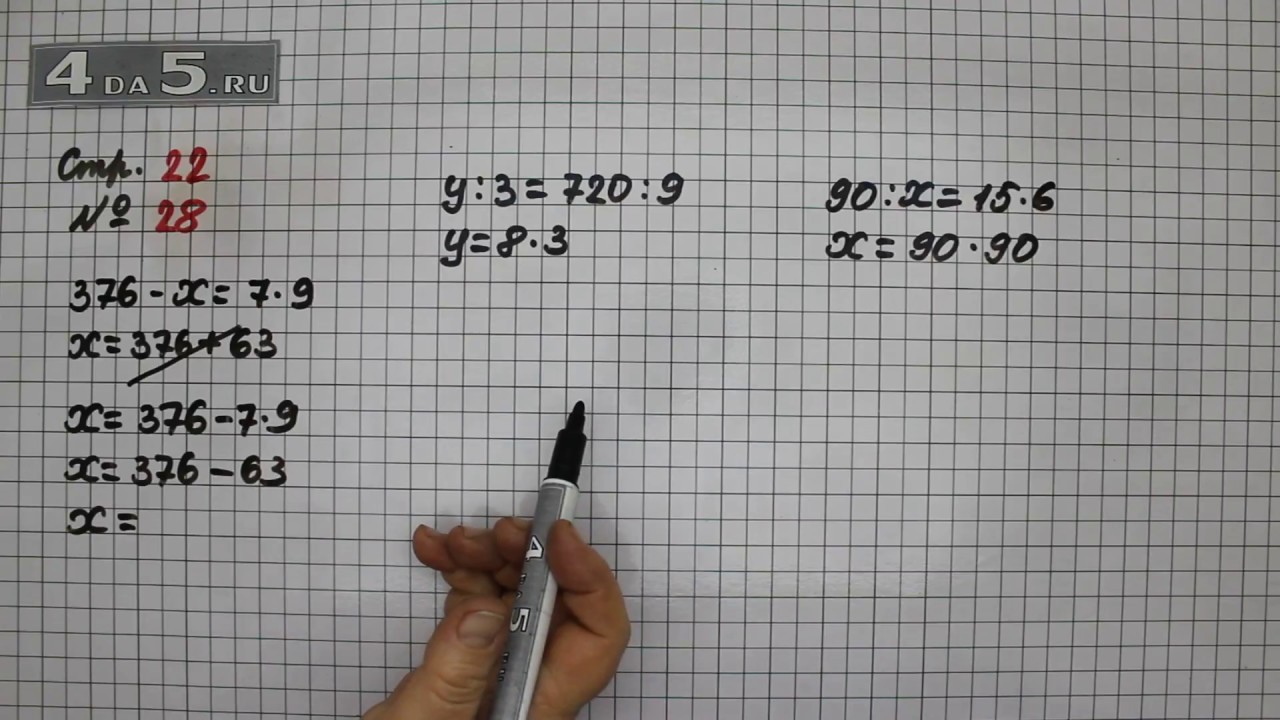 4DA5.RU
Стр. 22
№ 28
376 - x = 7·9
x = 376 + 63
x = 376 - 7·9
x = 376 - 63
x =
y : 3 = 720 : 9
y = 8·3
90 : x = 15·6
x = 90·90
4
5